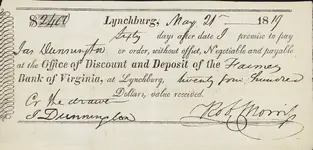 $2400 Lynchburg, May 21st 1819
Sixty days after date I promise to pay
Jas Dunnington or order, without offset, Negotiable and payable
at the Office of Discount and Deposit of the Farmers
Bank of Virginia, at Lynchburg, twenty four hundred
Dollars, value received.
Cr the drawer
J Dunnington
Rob Morris